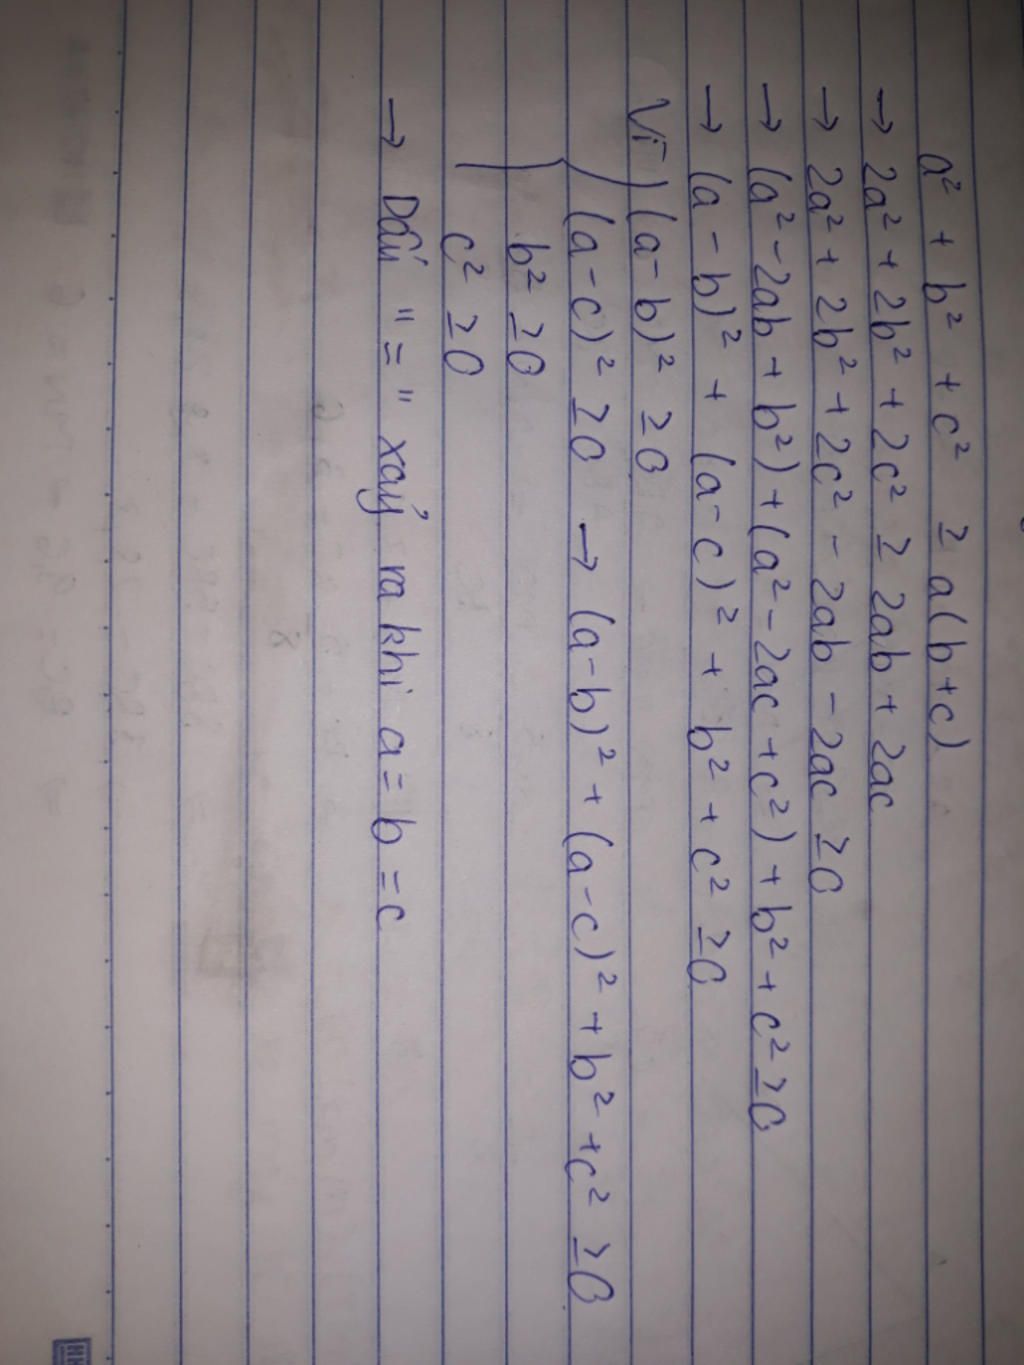 a² + b² + c² ≥ a(b+c)
→ 2a² + 2b² + 2c² ≥ 2ab + 2ac
→ 2a² + 2b² + 2c² - 2ab - 2ac ≥0
→ (a² - 2ab + b²) + (a² - 2ac + c²) + b² + c² ≥0
→ (a - b)² + (a-c)² + b² + c² ≥0
Vì (a-b)² ≥0
(a-c)² ≥0 → (a-b)² + (a-c)² + b² + c² ≥0
b² ≥0
c² ≥0
→ Dấu "=" xảy ra khi a = b = c